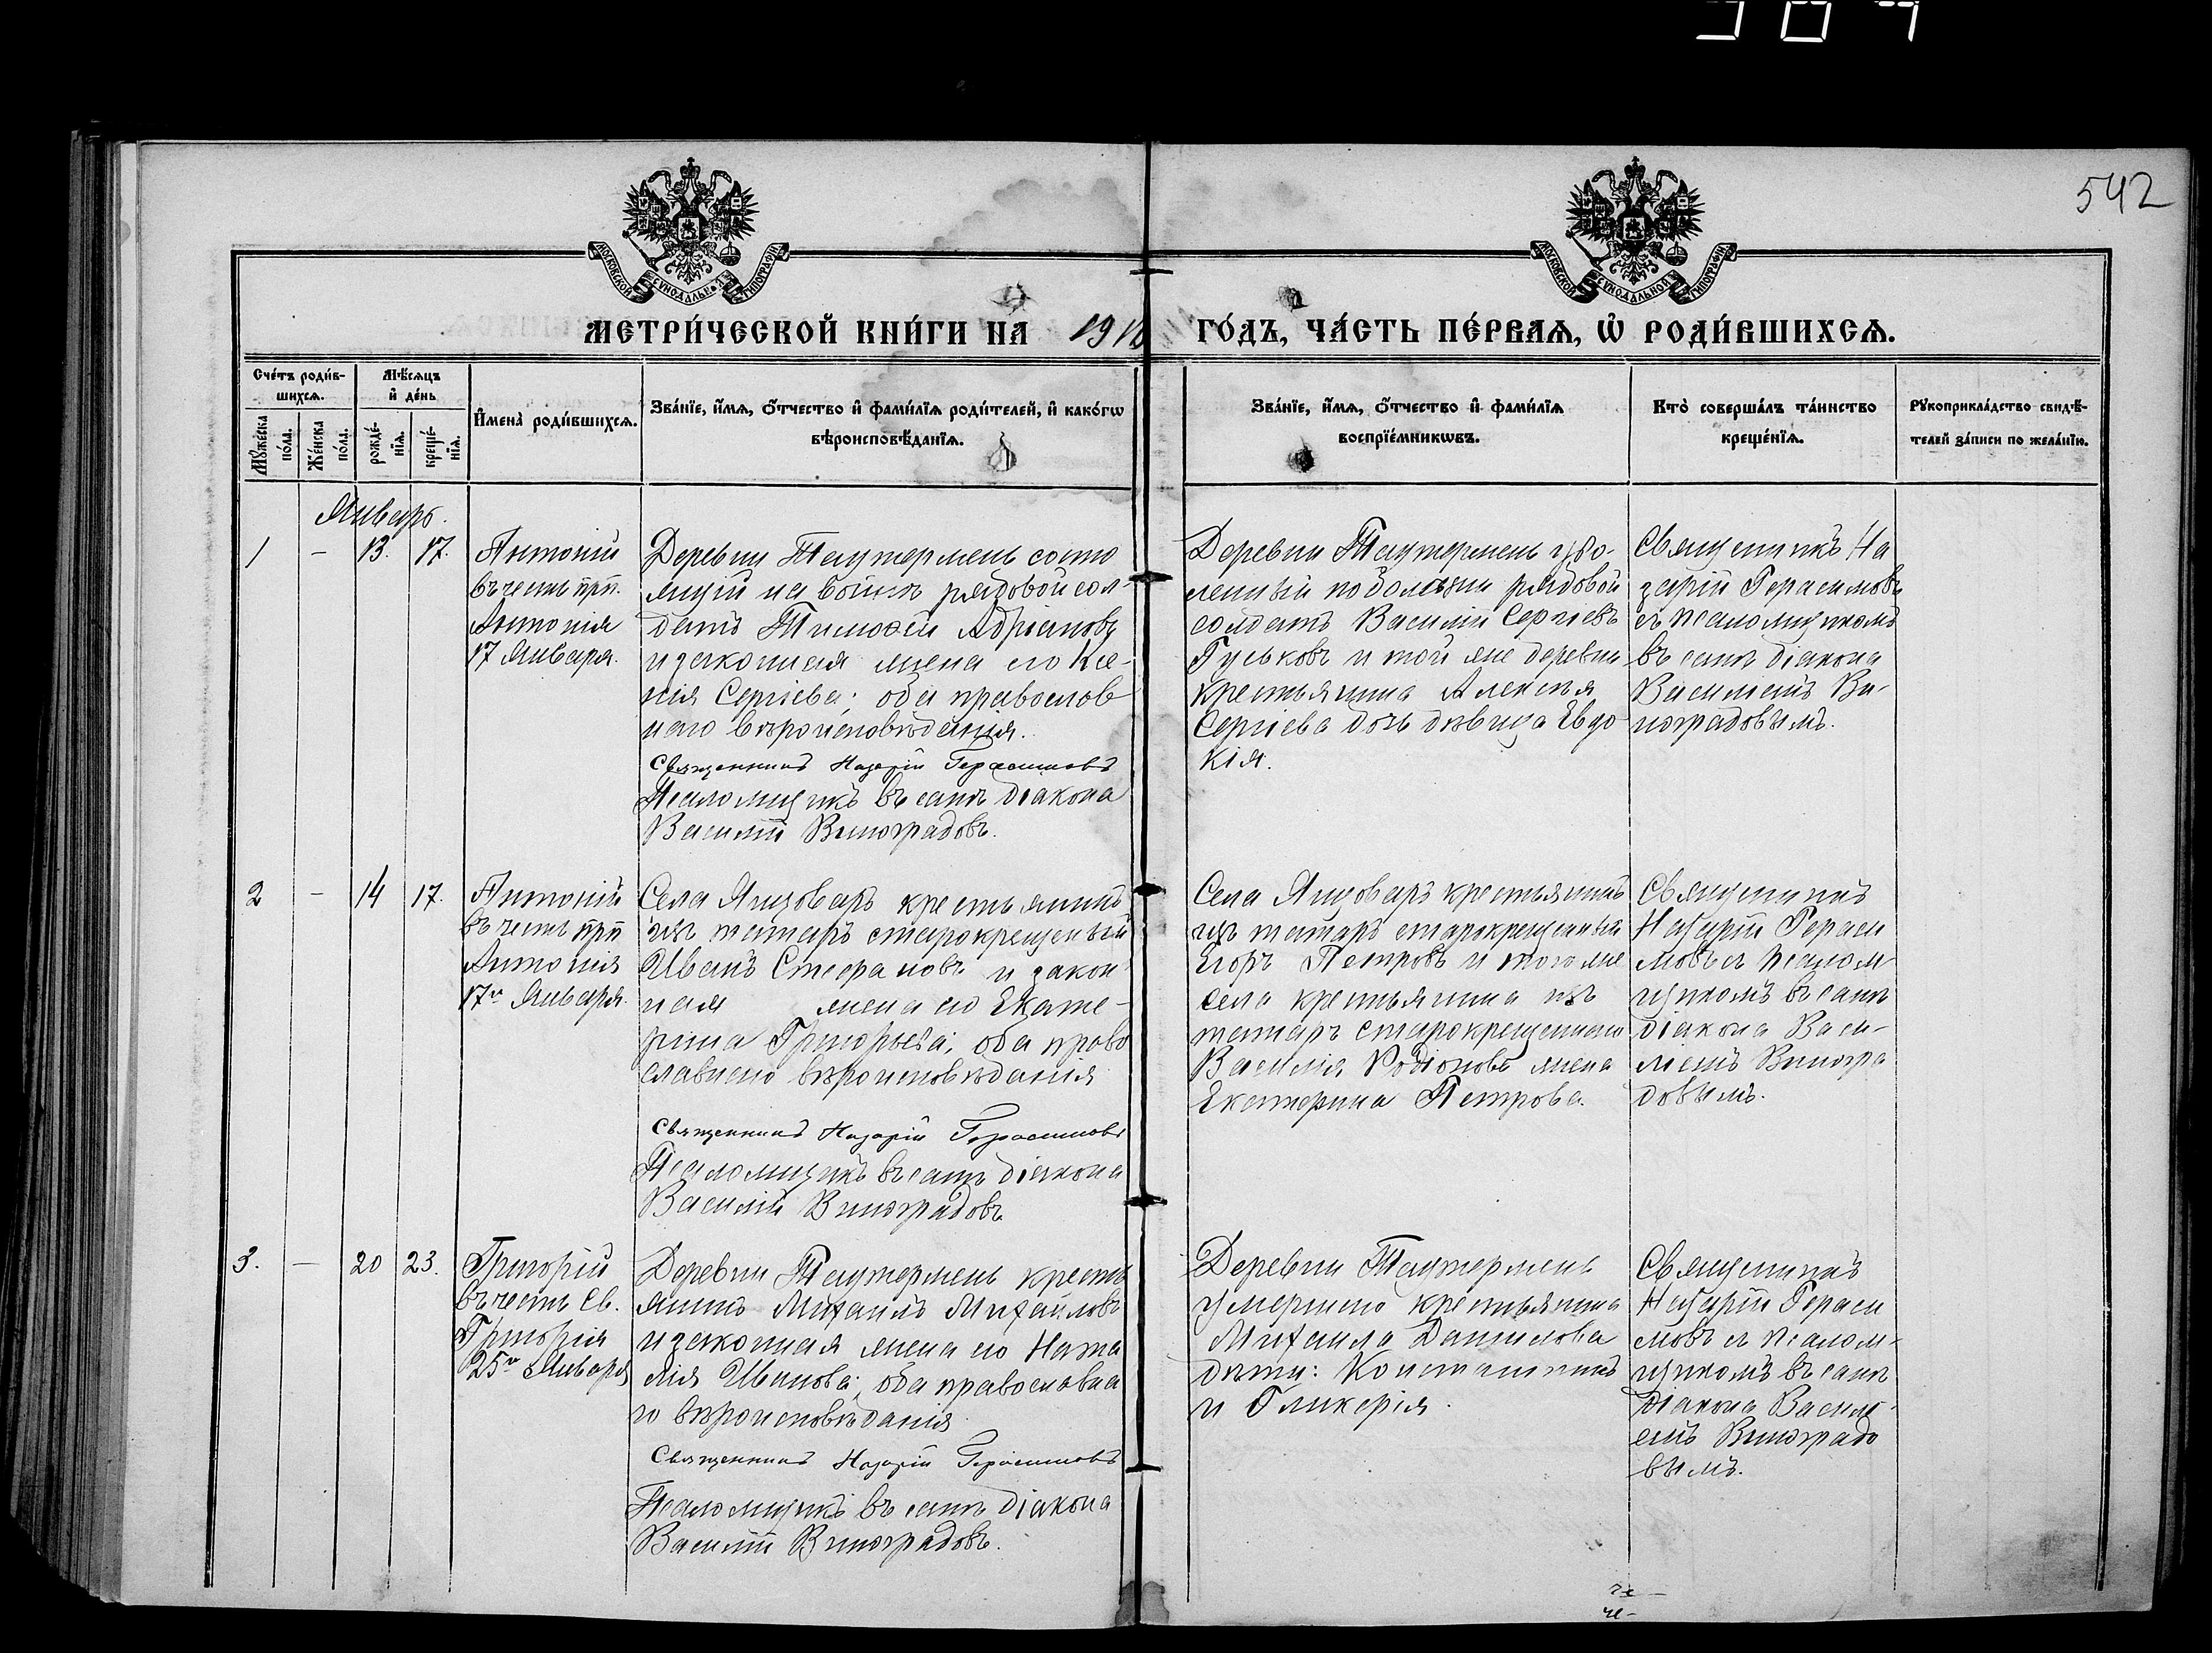 542
МОСКОВСКОЙ СѴНОДАЛЬНОЙ ТИПОГРАФІИ
МОСКОВСКОЙ СѴНОДАЛЬНОЙ ТИПОГРАФІИ
МЕТРИ́ЧЕСКОЙ КНИ́ГИ НА 1916 ГО́ДЪ, ЧА́СТЬ ПЕ́РВАѦ, Ѡ҆ РОДИ́ВШИХСѦ.
Сче́тъ роди́в-
шихсѧ.
Мꙋ́жеска по́ла.
Же́нска по́ла.
Мѣ́сѧцъ
и҆ де́нь
рожде́-нїѧ.
креще́-нїѧ.
И҆мена̀ роди́вшихсѧ.
Зва́нїе, и҆́мѧ, ѻ҆́тчество и҆ фами́лїѧ роди́телей, и҆ како́гѡ
вѣроисповѣ́данїѧ.
Зва́нїе, и҆́мѧ, ѻ҆́тчество и҆ фами́лїѧ
воспрїе́мникѡвъ.
Кто̀ соверша́лъ та́инство
креще́нїѧ.
Рꙋкоприкла́дство свидѣ́-
телей за́писи по жела́нїю.
Январь.
1 – 13. 17.
Антоній
въ честь прп.
Антонія
17 Января.
Деревни Таутермень состо
ящій на войнѣ рядовой сол-
датъ Тимоѳей Адріановъ
и законная жена его Ксе-
нія Сергіева; оба православ
наго вѣроисповѣданія.
Священникъ Назарій Герасимовъ
Псаломщикъ въ санѣ діакона
Василій Виноградовъ.
Деревни Таутермень уво-
ленный по болѣзни рядовой
солдатъ Василій Сергіевъ
Гуськовъ и той же деревни
крестьянина Алексѣя
Сергіева дочь дѣвица Евдо
кія.
Священникъ На
зарій Герасимовъ
съ псаломщикомъ
въ санѣ діакона
Василіемъ Ви-
ноградовымъ.
2 – 14 17.
Антоній
въ честь прп
Антонія
17го Января.
Села Янцоваръ крестьянинъ
изъ татаръ старокрещеный
Иванъ Стефановъ и закон
ная жена его Екате-
рина Григорьева; оба право
славнаго вѣроисповѣданія
Священникъ Назарій Герасимовъ
Псаломщикъ въ санѣ діакона
Василій Виноградовъ
Села Янцоваръ крестьянинъ
изъ татаръ старокрещеный
Егоръ Петровъ и того же
села крестьянина изъ
татаръ старокрещенаго
Василія Родіонова жена
Екатерина Петрова.
Священникъ
Назарій Гераси
мовъ съ псалом
щикомъ въ санѣ
діакона Васи-
ліемъ Виногра
довымъ.
3. – 20 23.
Григорій
въ честь св.
Григорія
25го Января
Деревни Таутермень кресть
янинъ Михаилъ Михайловъ
и законная жена его Ната
лія Иванова; оба православна
го вѣроисповѣданія
Священникъ Назарій Герасимовъ
Псаломщикъ въ санѣ діакона
Василій Виноградовъ.
Деревни Таутермень
умершаго крестьянина
Михаила Данилова
дѣти: Константинъ
и Гликерія.
Священникъ
Назарій Гераси
мовъ съ псалом-
щикомъ въ санѣ
діакона Васил-
емъ Виноградо
вымъ.